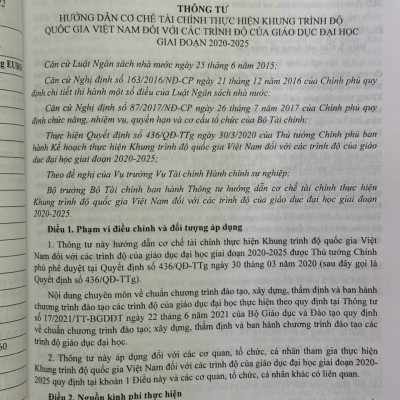 THÔNG TƯ
HƯỚNG DẪN CƠ CHẾ TÀI CHÍNH THỰC HIỆN KHUNG TRÌNH ĐỘ
QUỐC GIA VIỆT NAM ĐỐI VỚI CÁC TRÌNH ĐỘ CỦA GIÁO DỤC ĐẠI HỌC
GIAI ĐOẠN 2020-2025
Căn cứ Luật Ngân sách nhà nước ngày 25 tháng 6 năm 2015;
Căn cứ Nghị định số 163/2016/NĐ-CP ngày 21 tháng 12 năm 2016 của Chính phủ quy
định chi tiết thi hành một số điều của Luật Ngân sách nhà nước;
Căn cứ Nghị định số 87/2017/NĐ-CP ngày 26 tháng 7 năm 2017 của Chính phủ quy
định chức năng, nhiệm vụ, quyền hạn và cơ cấu tổ chức của Bộ Tài chính;
Thực hiện Quyết định số 436/QĐ-TTg ngày 30/3/2020 của Thủ tướng Chính phủ ban
hành Kế hoạch thực hiện Khung trình độ quốc gia Việt Nam đối với các trình độ của giáo
dục đại học giai đoạn 2020-2025;
Theo đề nghị của Vụ trưởng Vụ Tài chính Hành chính sự nghiệp;
Bộ trưởng Bộ Tài chính ban hành Thông tư hướng dẫn cơ chế tài chính thực hiện
Khung trình độ quốc gia Việt Nam đối với các trình độ của giáo dục đại học giai đoạn
2020-2025.
Điều 1. Phạm vi điều chỉnh và đối tượng áp dụng
1. Thông tư này hướng dẫn cơ chế tài chính thực hiện Khung trình độ quốc gia Việt
Nam đối với các trình độ của giáo dục đại học giai đoạn 2020-2025 được Thủ tướng Chính
phủ phê duyệt tại Quyết định số 436/QĐ-TTg ngày 30 tháng 03 năm 2020 (sau đây gọi là
Quyết định số 436/QĐ-TTg).
Nội dung chuyên môn về chuẩn chương trình đào tạo, xây dựng, thẩm định và ban hành
chương trình đào tạo các trình độ của giáo dục đại học thực hiện theo quy định tại Thông tư
số 17/2021/TT-BGDĐT ngày 22 tháng 6 năm 2021 của Bộ Giáo dục và Đào tạo quy định
về chuẩn chương trình đào tạo; xây dựng, thẩm định và ban hành chương trình đào tạo các
trình độ giáo dục đại học.
2. Thông tư này áp dụng đối với các cơ quan, tổ chức, cá nhân tham gia thực hiện
Khung trình độ quốc gia Việt Nam đối với các trình độ của giáo dục đại học giai đoạn 2020-
2025 quy định tại khoản 1 Điều này và các cơ quan, tổ chức, cá nhân khác có liên quan.
Điều 2. Nguồn kinh phí thực hiện